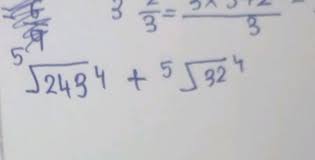 3 2/3 = 3×3+2/3
⁵√243⁴ + ⁵√32⁴